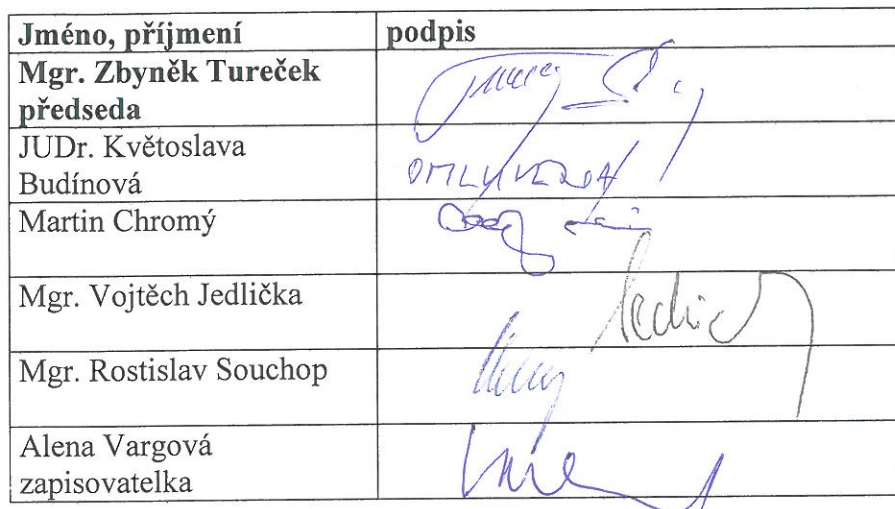 Jméno, příjmení podpis
Mgr. Zbyněk Tureček
předseda
JUDr. Květoslava
Budínová OMLUVENA
Martin Chromý
Mgr. Vojtěch Jedlička
Mgr. Rostislav Souchop
Alena Vargová
zapisovatelka